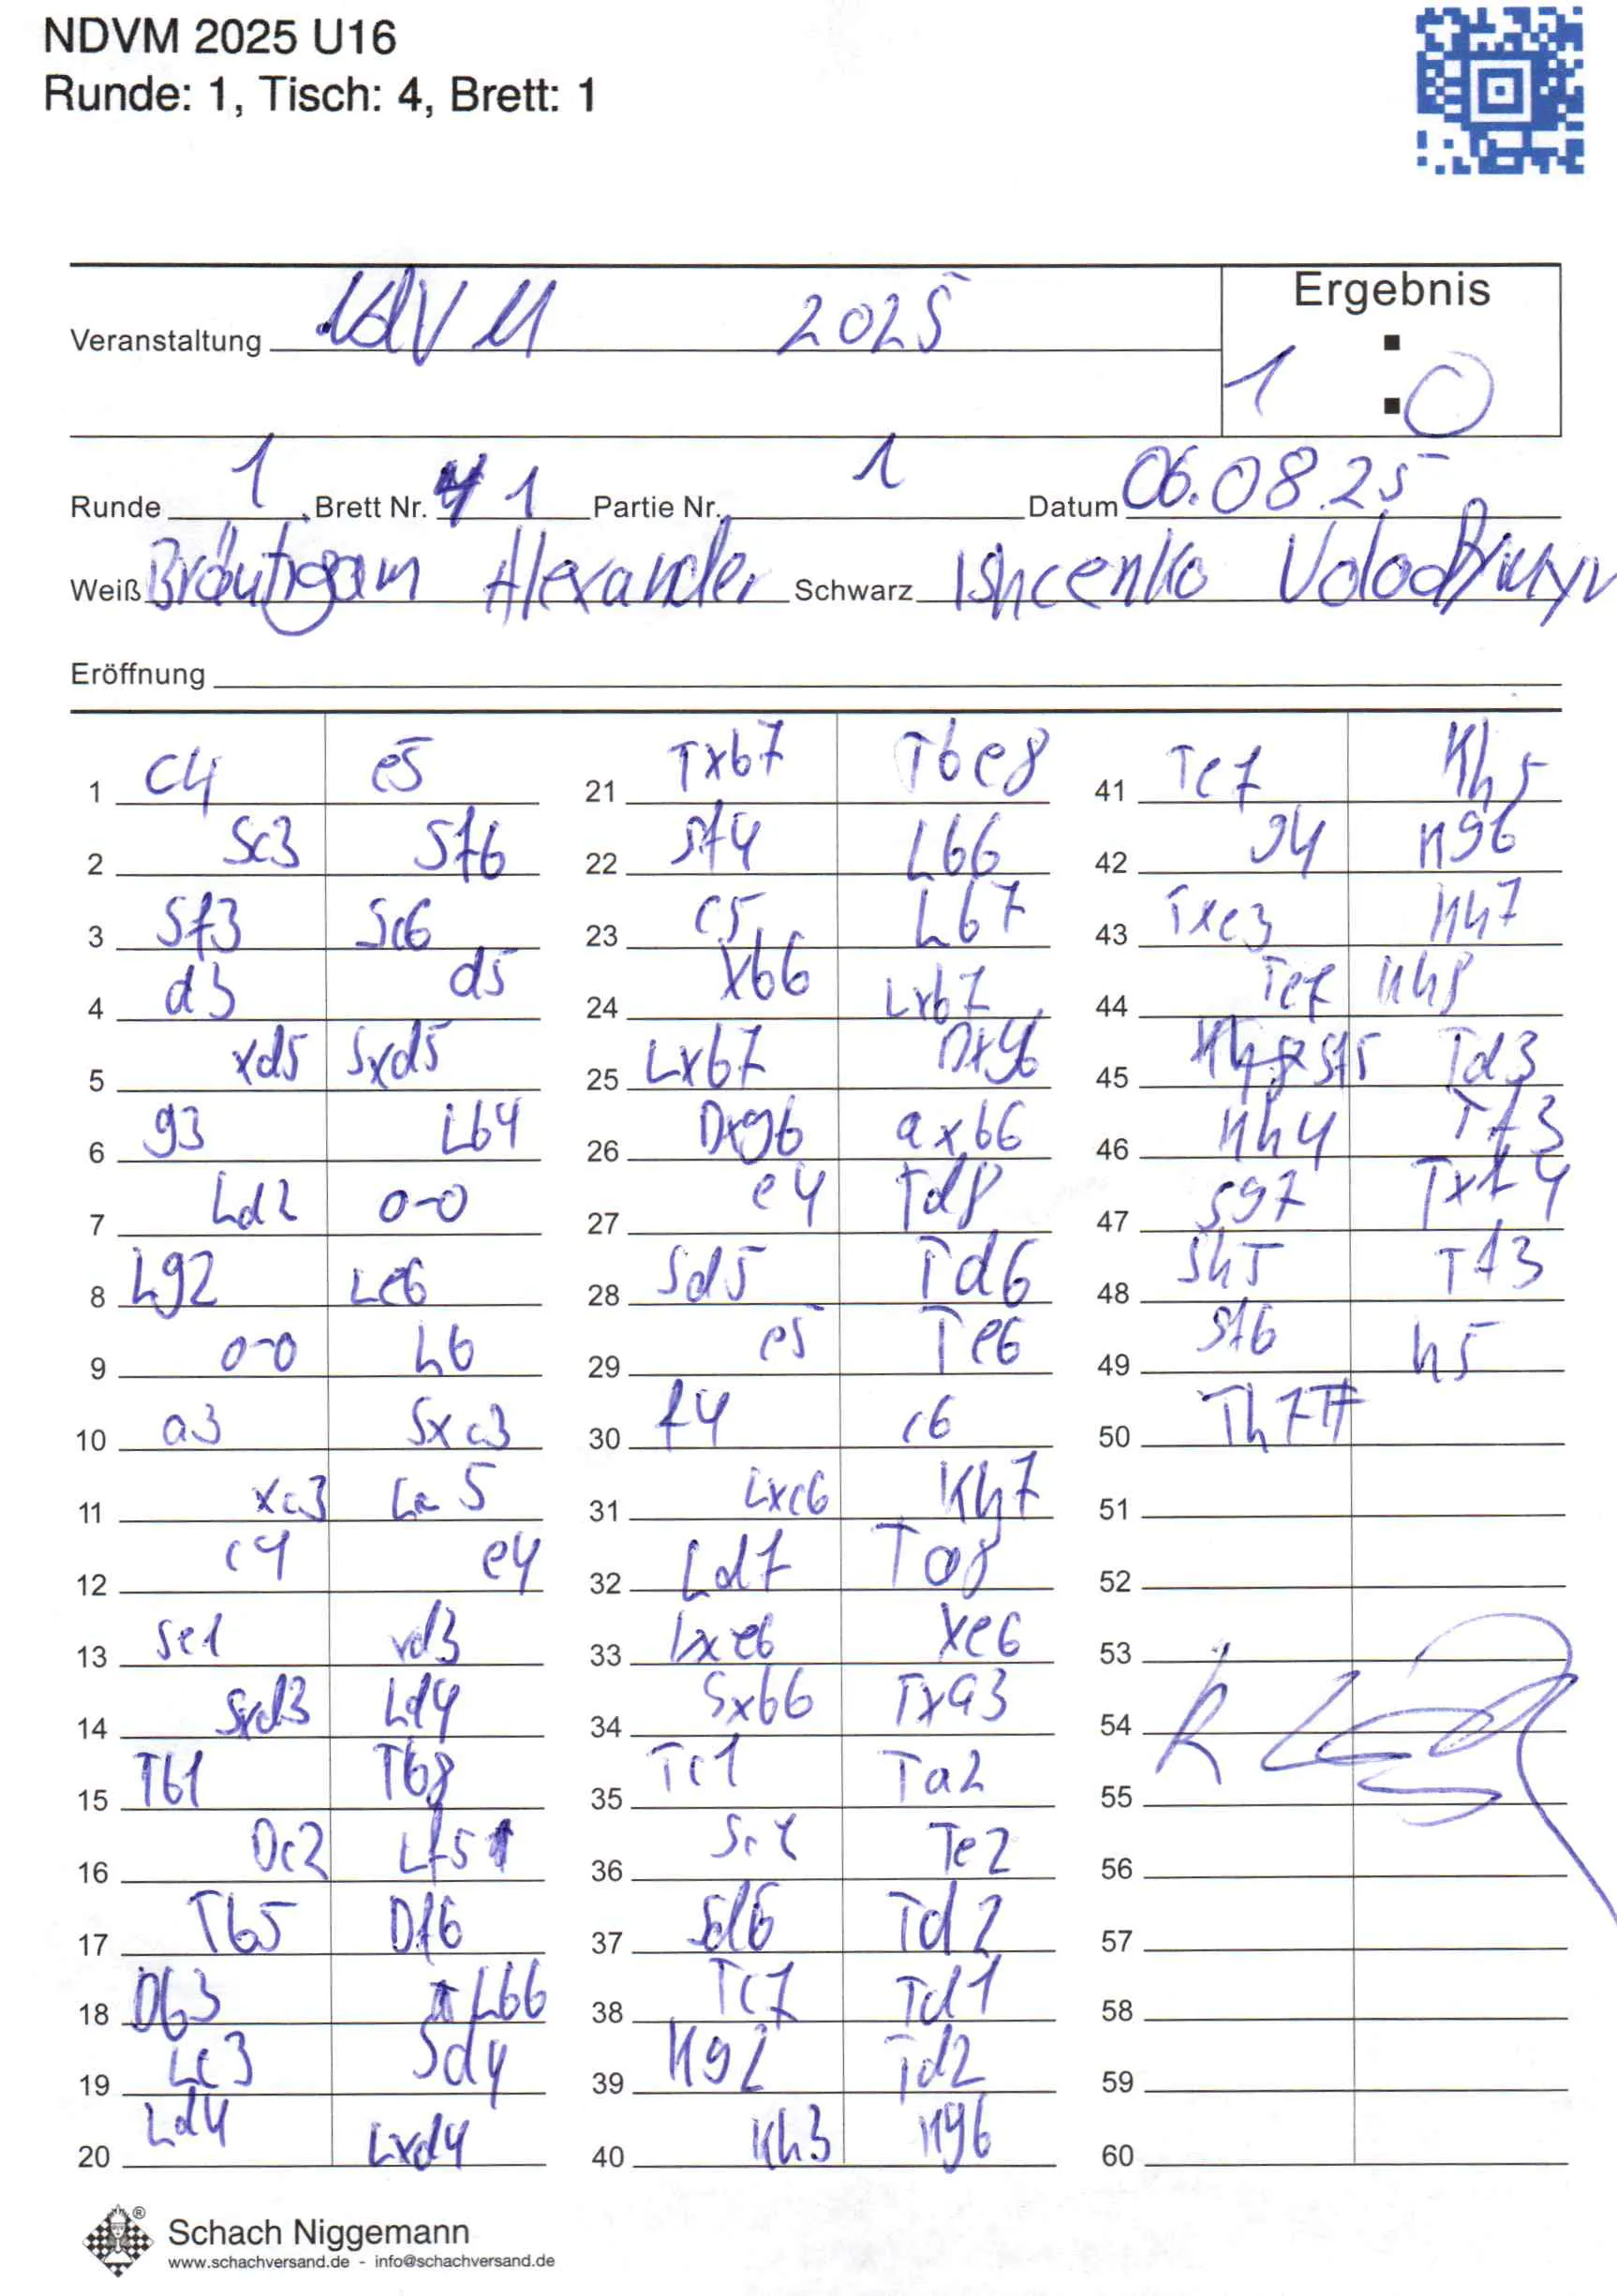 NDVM 2025 U16
Runde: 1, Tisch: 4, Brett: 1
Ergebnis
Veranstaltung NDVM 2025
1 : 0
Runde 1 Brett Nr. 1 Partie Nr. 1 Datum 06.08.25
Weiß Bräutigam Alexander Schwarz Ishcenko
Eröffnung
1 c4 e5
2 Sc3 Sf6
3 Sf3 Sc6
4 d3 d5
5 xd5 Sxd5
6 g3 Lb4
7 Ld2 0-0
8 Lg2 Le6
9 0-0 h6
10 a3 Sxc3
11 xc3 Lc5
12 c4 e4
13 Se1 xd3
14 Sxd3 Ld4
15 Tb1 Tb8
16 Dc2 Lf5
17 Tb5 Df6
18 Db3 Lb6
19 Lc3 Sd4
20 Ld4 Lxd4
21 Txb7 Tbe8
22 Sf4 Lb6
23 c5 Lb7
24 xb6 Lxb7
25 Lxb7 Dxg6
26 Dxg6 axb6
27 e4 Td8
28 Sd5 Td6
29 e5 Te6
30 f4 c6
31 Lxc6 Kh7
32 Ld7 Ta8
33 Lxe6 xe6
34 Sxb6 Txa3
35 Tc1 Ta2
36 Sc4 Te2
37 Sd6 Td2
38 Tc7 Td1
39 Kg2 Td2
40 Kh3 Kg6
41 Te7 Kh5
42 g4 Kg6
43 Txe3 Kh7
44 Te7 Kh8
45 Sf5 Td3
46 Kh4 Tf3
47 Sg7 Txf4
48 Sh5 Tf3
49 Sf6 h5
50 Th7#
51
52
53
54
55
56
57
58
59
60
Schach Niggemann
www.schachversand.de - info@schachversand.de